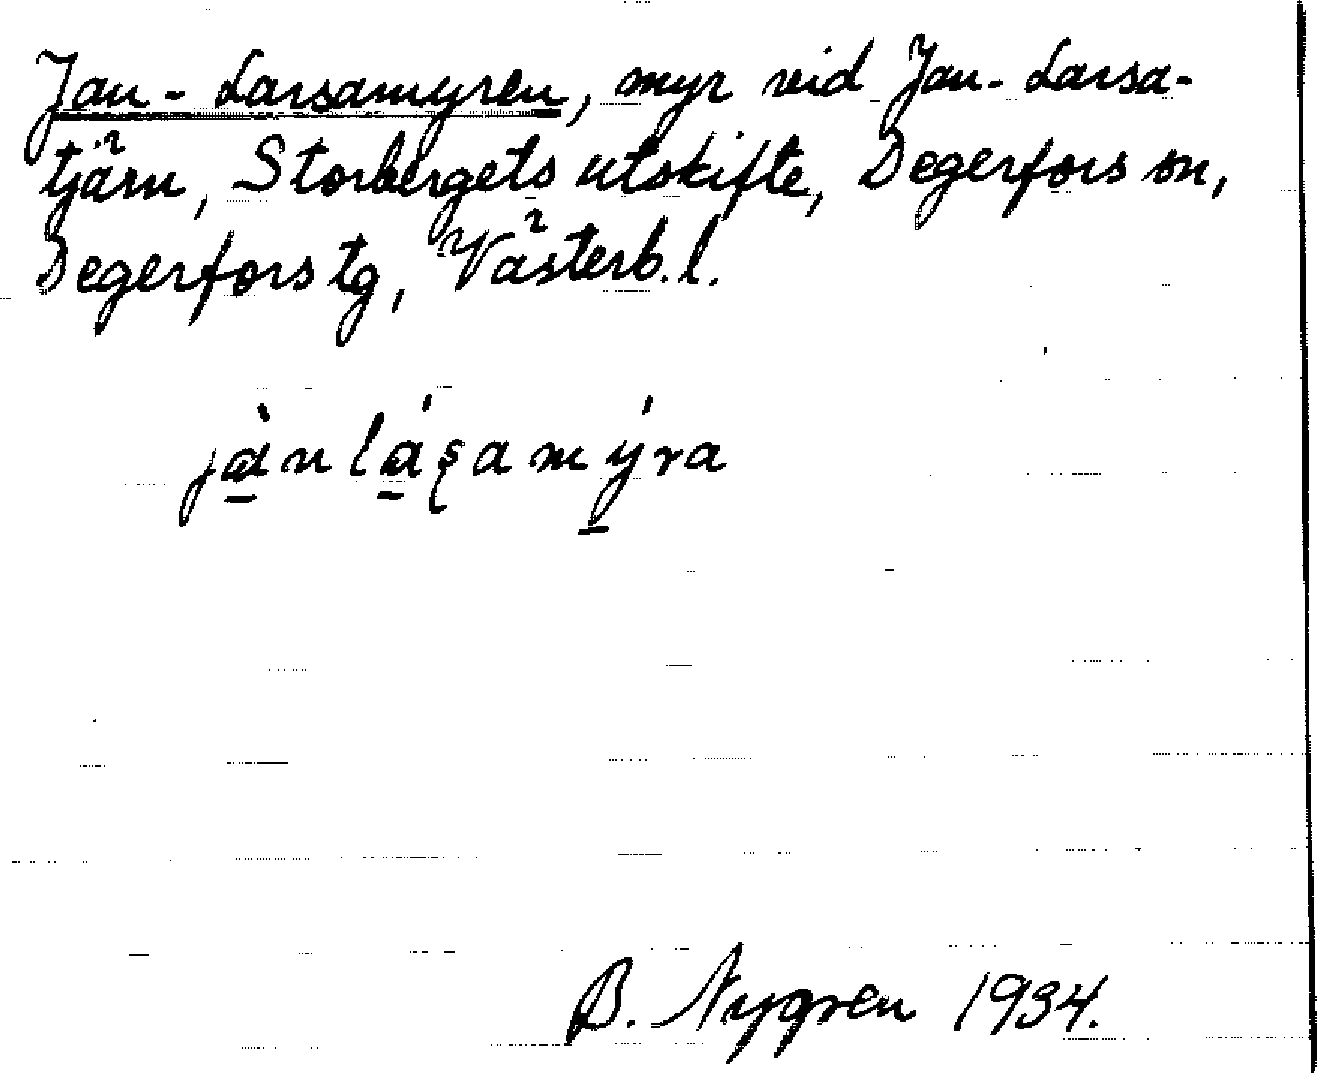 Jan-Larsamyren, myr vid Jan-Larsa-
tjärn, Storbergets utskifte, Degerfors sn,
Degerfors tg, Västerb.l.
jà̱nlá̱ʂamý̱ra
B. Nygren 1934.